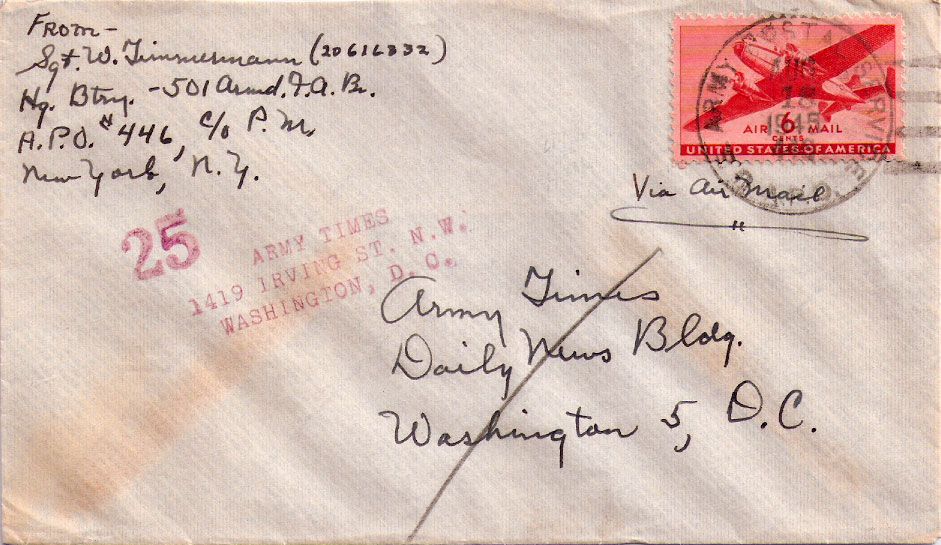 FROM-
Sgt. W. Timmermann (20616332)
Hq. Btry. - 501 Armd. F.A. Bn.
A.P.O. # 446, c/o P.M.
New York, N.Y.
ARMY POSTAL SERVICE
AUG
18
1945
A.P.O.
AIR 6 MAIL
CENTS
UNITED STATES OF AMERICA
Via Air Mail
25
ARMY TIMES
1419 IRVING ST. N.W.
WASHINGTON, D. C.
Army Times
Daily News Bldg.
Washington 5, D.C.